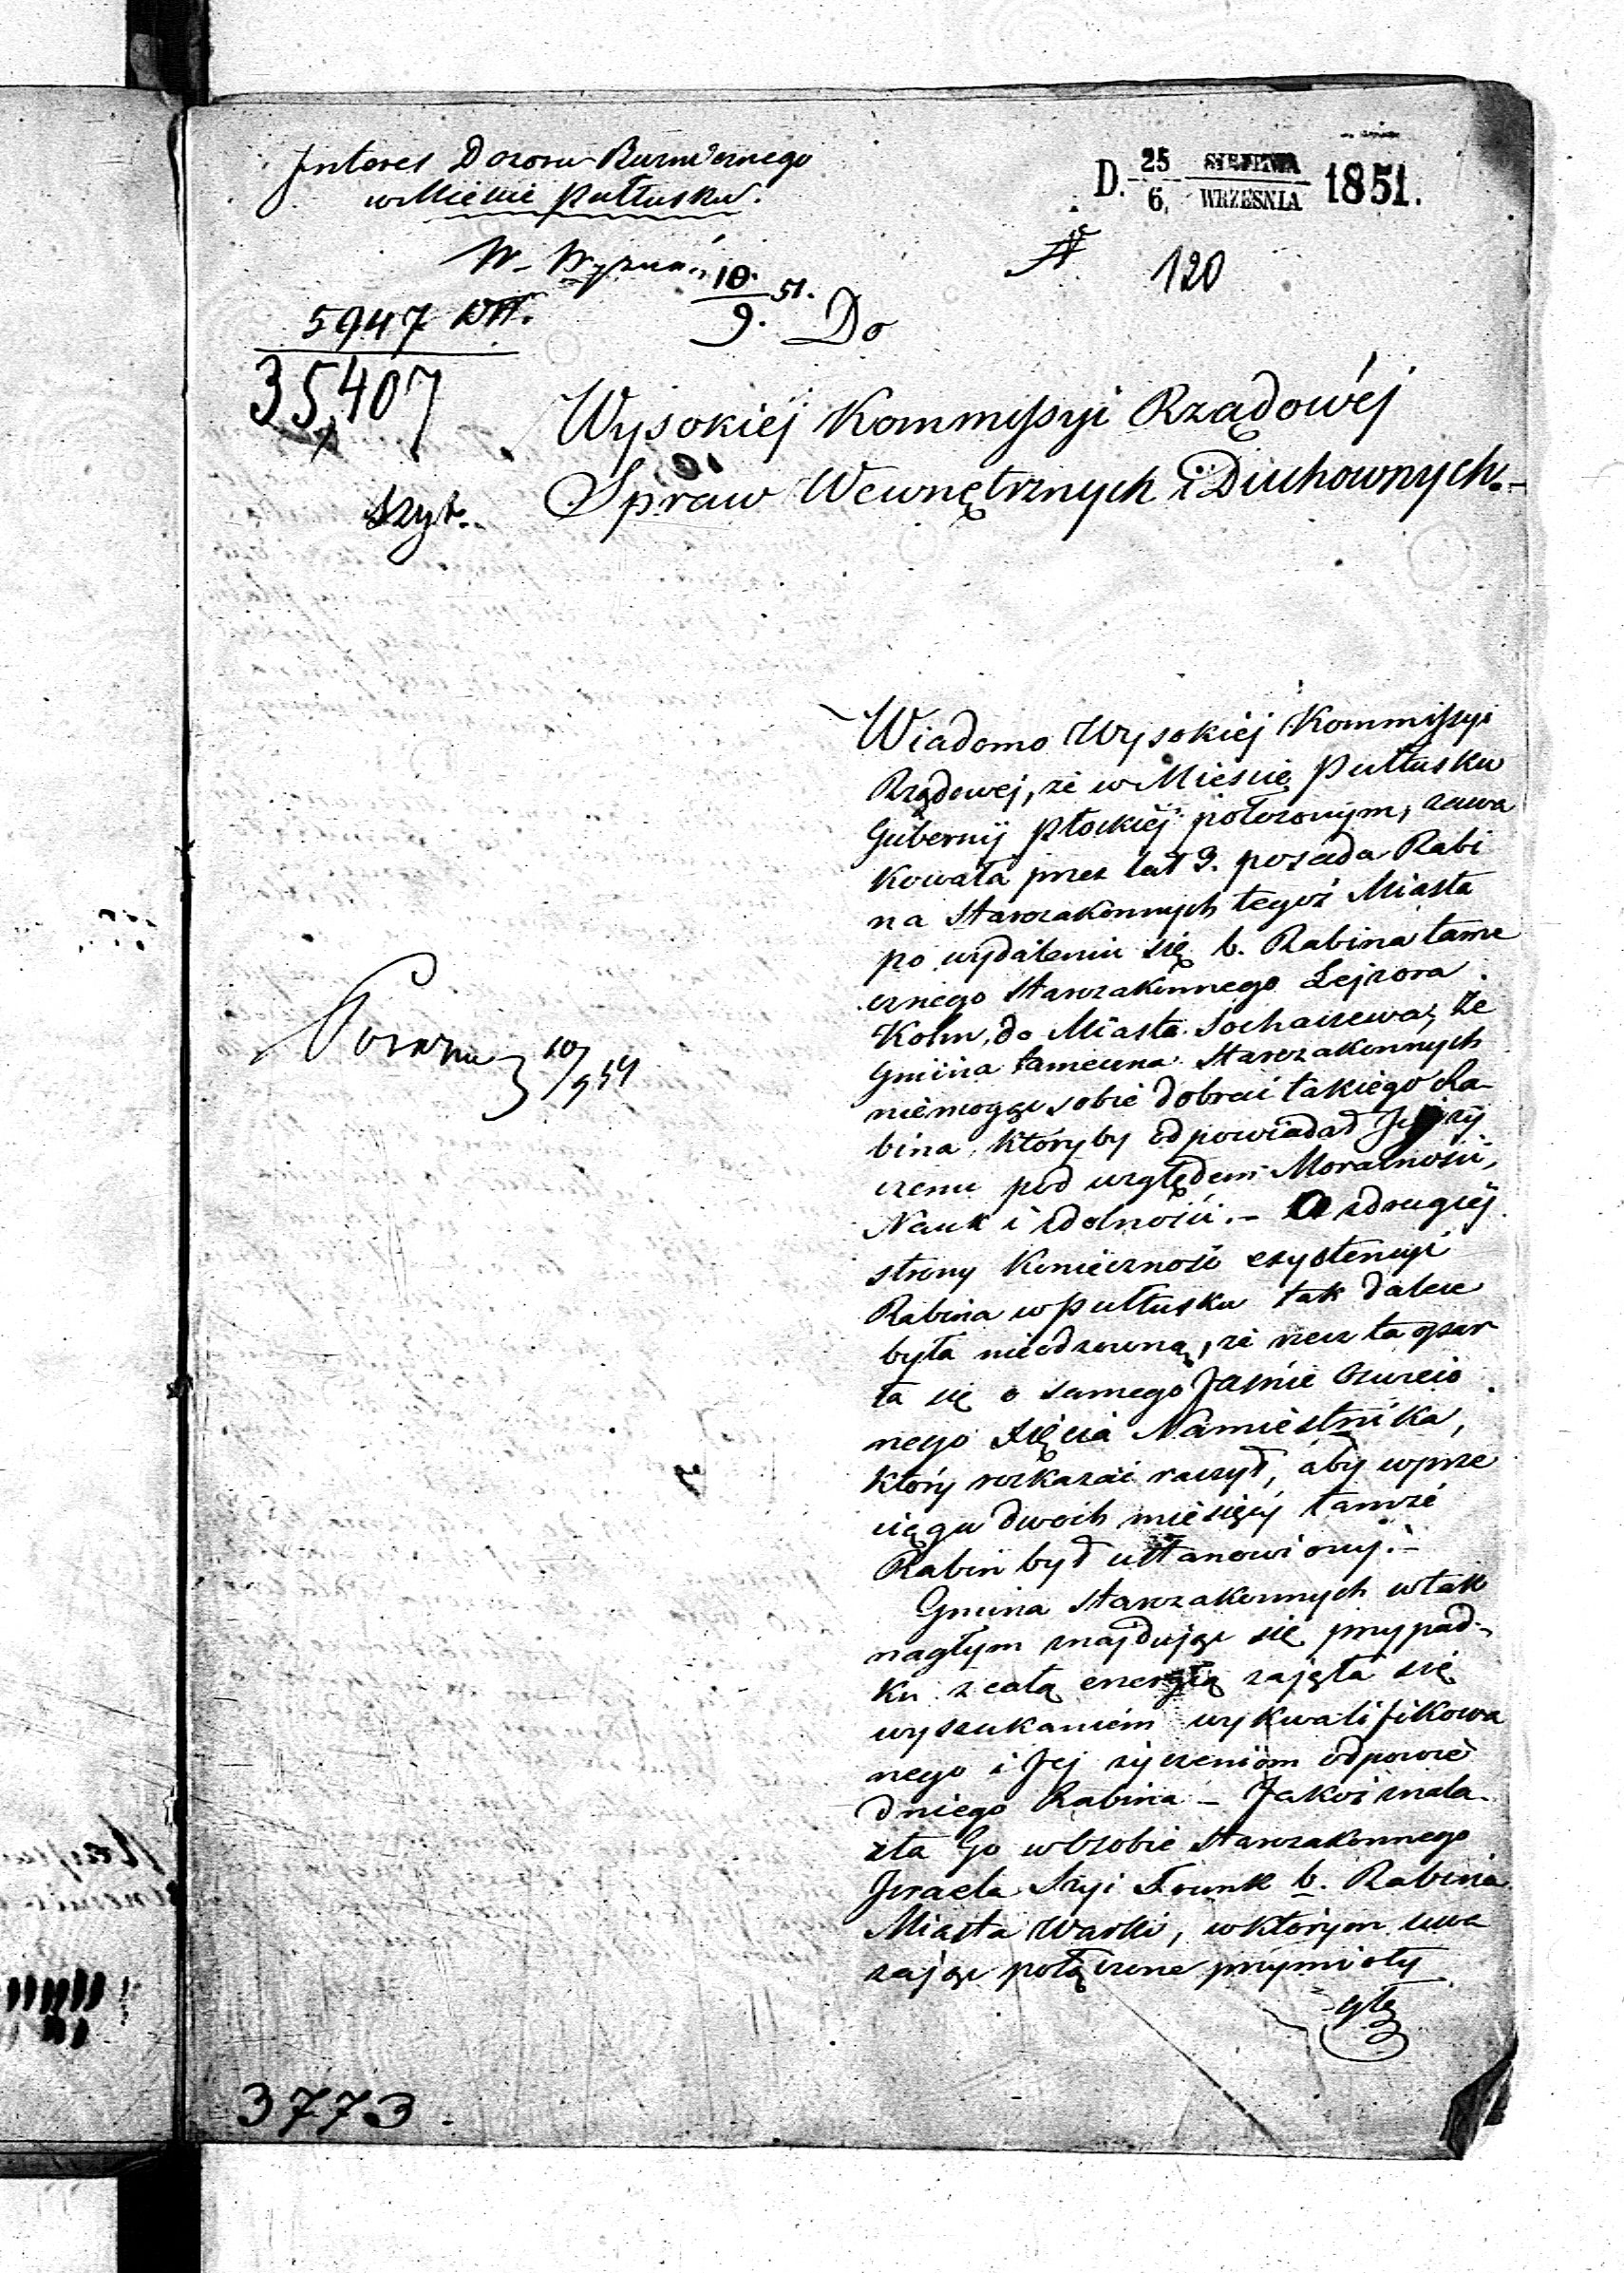 Interes Dozoru Bużniczego
w Mieście Pułtusku.
D. 25 SIERPNIA / 6, WRZEŚNIA 1851.
W. Wyznań
10. / 9. 51.
120
5947
35,407
Do
Wysokiéj Kommissyi Rządowéj
Spraw Wewnętrznych i Duchownych.-
Wiadomo Wysokiéj Kommissyi
Rządowej, że w Mieście Pułtusku
Gubernij Płockiéj położonym, zawa
kowała przez lat 9. posada Rabi
na Starozakonnych tegoż Miasta
po wydaleniu się b. Rabina tame
cznego Starozakonnego Lejzora
Kohn, do Miasta Sochaczewa; że
Gmina tameczna Starozakonnych
niemogąc sobie dobrać takiego Ra-
bina, któryby odpowiadał Jej ży
czeniu pod względem Moralności,
Nauk i zdolności. - A z drugiéj
strony konieczność exystencyi
Rabina w Pułtusku tak dalece
była nieodzowną, że rzecz ta opar
ła się o samego Jaśnie Oświeco
nego Xięcia Namiestnika,
który rozkazać raczył, aby w prze
ciągu dwóch miesięcy tamże
Rabin był ustanowiony.-
Gmina Starozakonnych w tak
nagłym znajdując się przypad-
ku z całą energią zajęła się
wyszukaniem wykwalifikowa
nego i Jej życzeniom odpowie
dniego Rabina - Jakoż znala-
zła Go w Osobie Starozakonnego
Izraela Szyi Trunk b. Rabina
Miasta Warki, w którym uwa
żając połączone przymioty
3773.